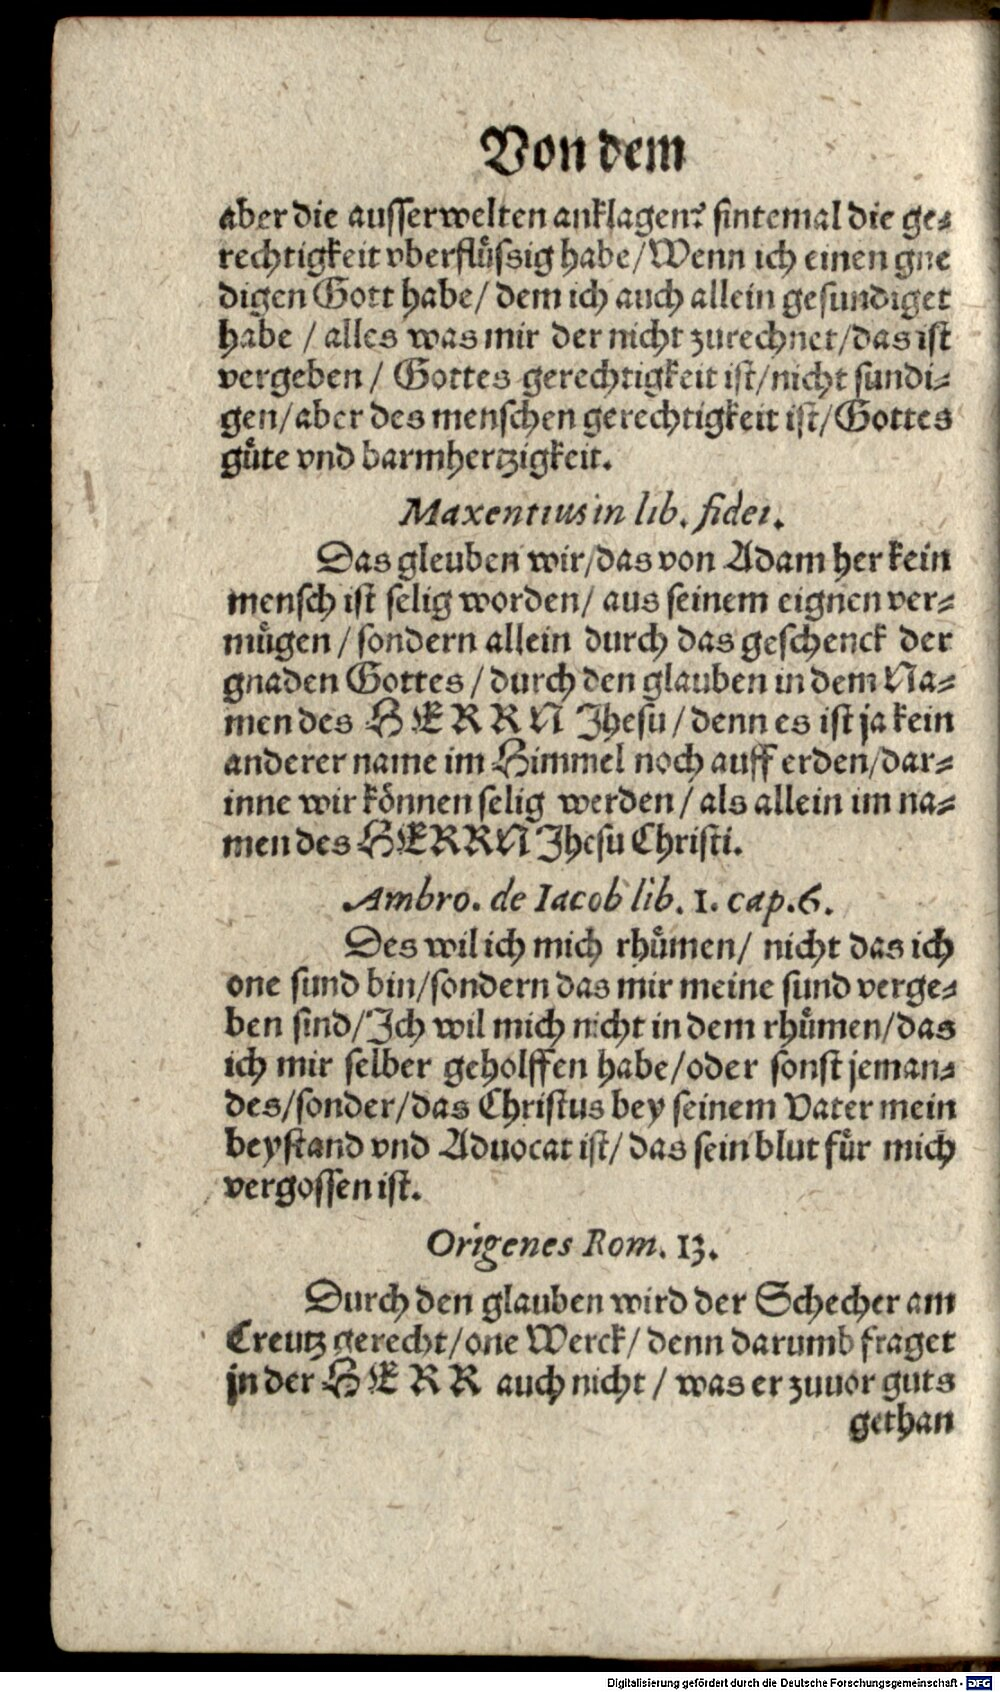 Von dem
aber die ausserwelten anklagen? sintemal die ge⸗
rechtigkeit vberflüssig habe/Wenn ich einen gne
digen Gott habe/ dem ich auch allein gesundiget
habe / alles was mir der nicht zurechnet/das ist
vergeben / Gottes gerechtigkeit ist/nicht sundi⸗
gen/aber des menschen gerechtigkeit ist/Gottes
güte vnd barmhertzigkeit.
Maxentius in lib. fidei.
Das gleuben wir/das von Adam her kein
mensch ist selig worden/ aus seinem eignen ver⸗
mügen / sondern allein durch das geschenck der
gnaden Gottes / durch den glauben in dem Na⸗
men des HERRN Jhesu / denn es ist ja kein
anderer name im Himmel noch auff erden/dar⸗
inne wir können selig werden / als allein im na⸗
men des HERRN Jhesu Christi.
Ambro. de Iacob lib. 1. cap.6.
Des wil ich mich rhümen/ nicht das ich
one sund bin/sondern das mir meine sund verge⸗
ben sind/Jch wil mich nicht in dem rhümen/das
ich mir selber geholffen habe/oder sonst jeman⸗
des/sonder/das Christus bey seinem Vater mein
beystand vnd Aduocat ist/ das sein blut für mich
vergossen ist.
Origenes Rom. 13.
Durch den glauben wird der Schecher am
Creutz gerecht/one Werck/ denn darumb fraget
jn der HERR auch nicht / was er zuuor guts
gethan
Digitalisierung gefördert durch die Deutsche Forschungsgemeinschaft - DFG